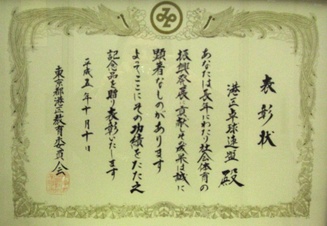 表彰状
港区卓球連盟 殿
あなたは長年にわたり社会体育の
振興発展に貢献しその成果は誠に
顕著なものがあります
よってここにその功績をたたえ
記念品を贈り表彰いたします
平成五年十月十日
東京都港区教育委員会